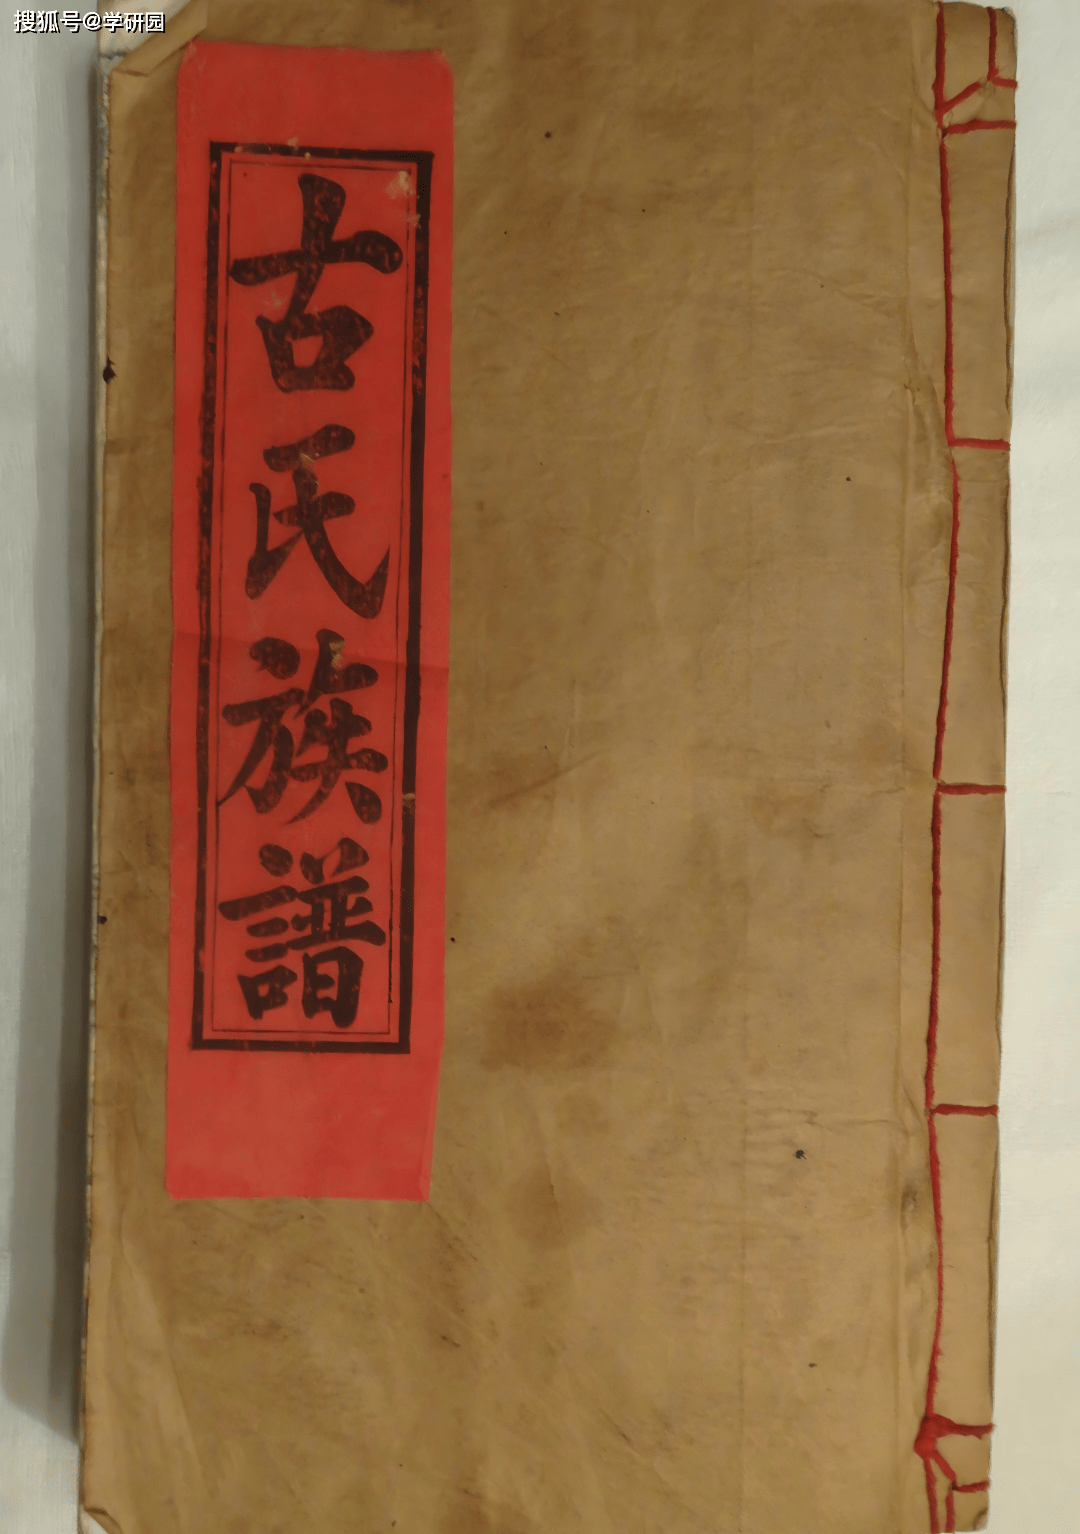 搜狐号@学研园
古氏族譜